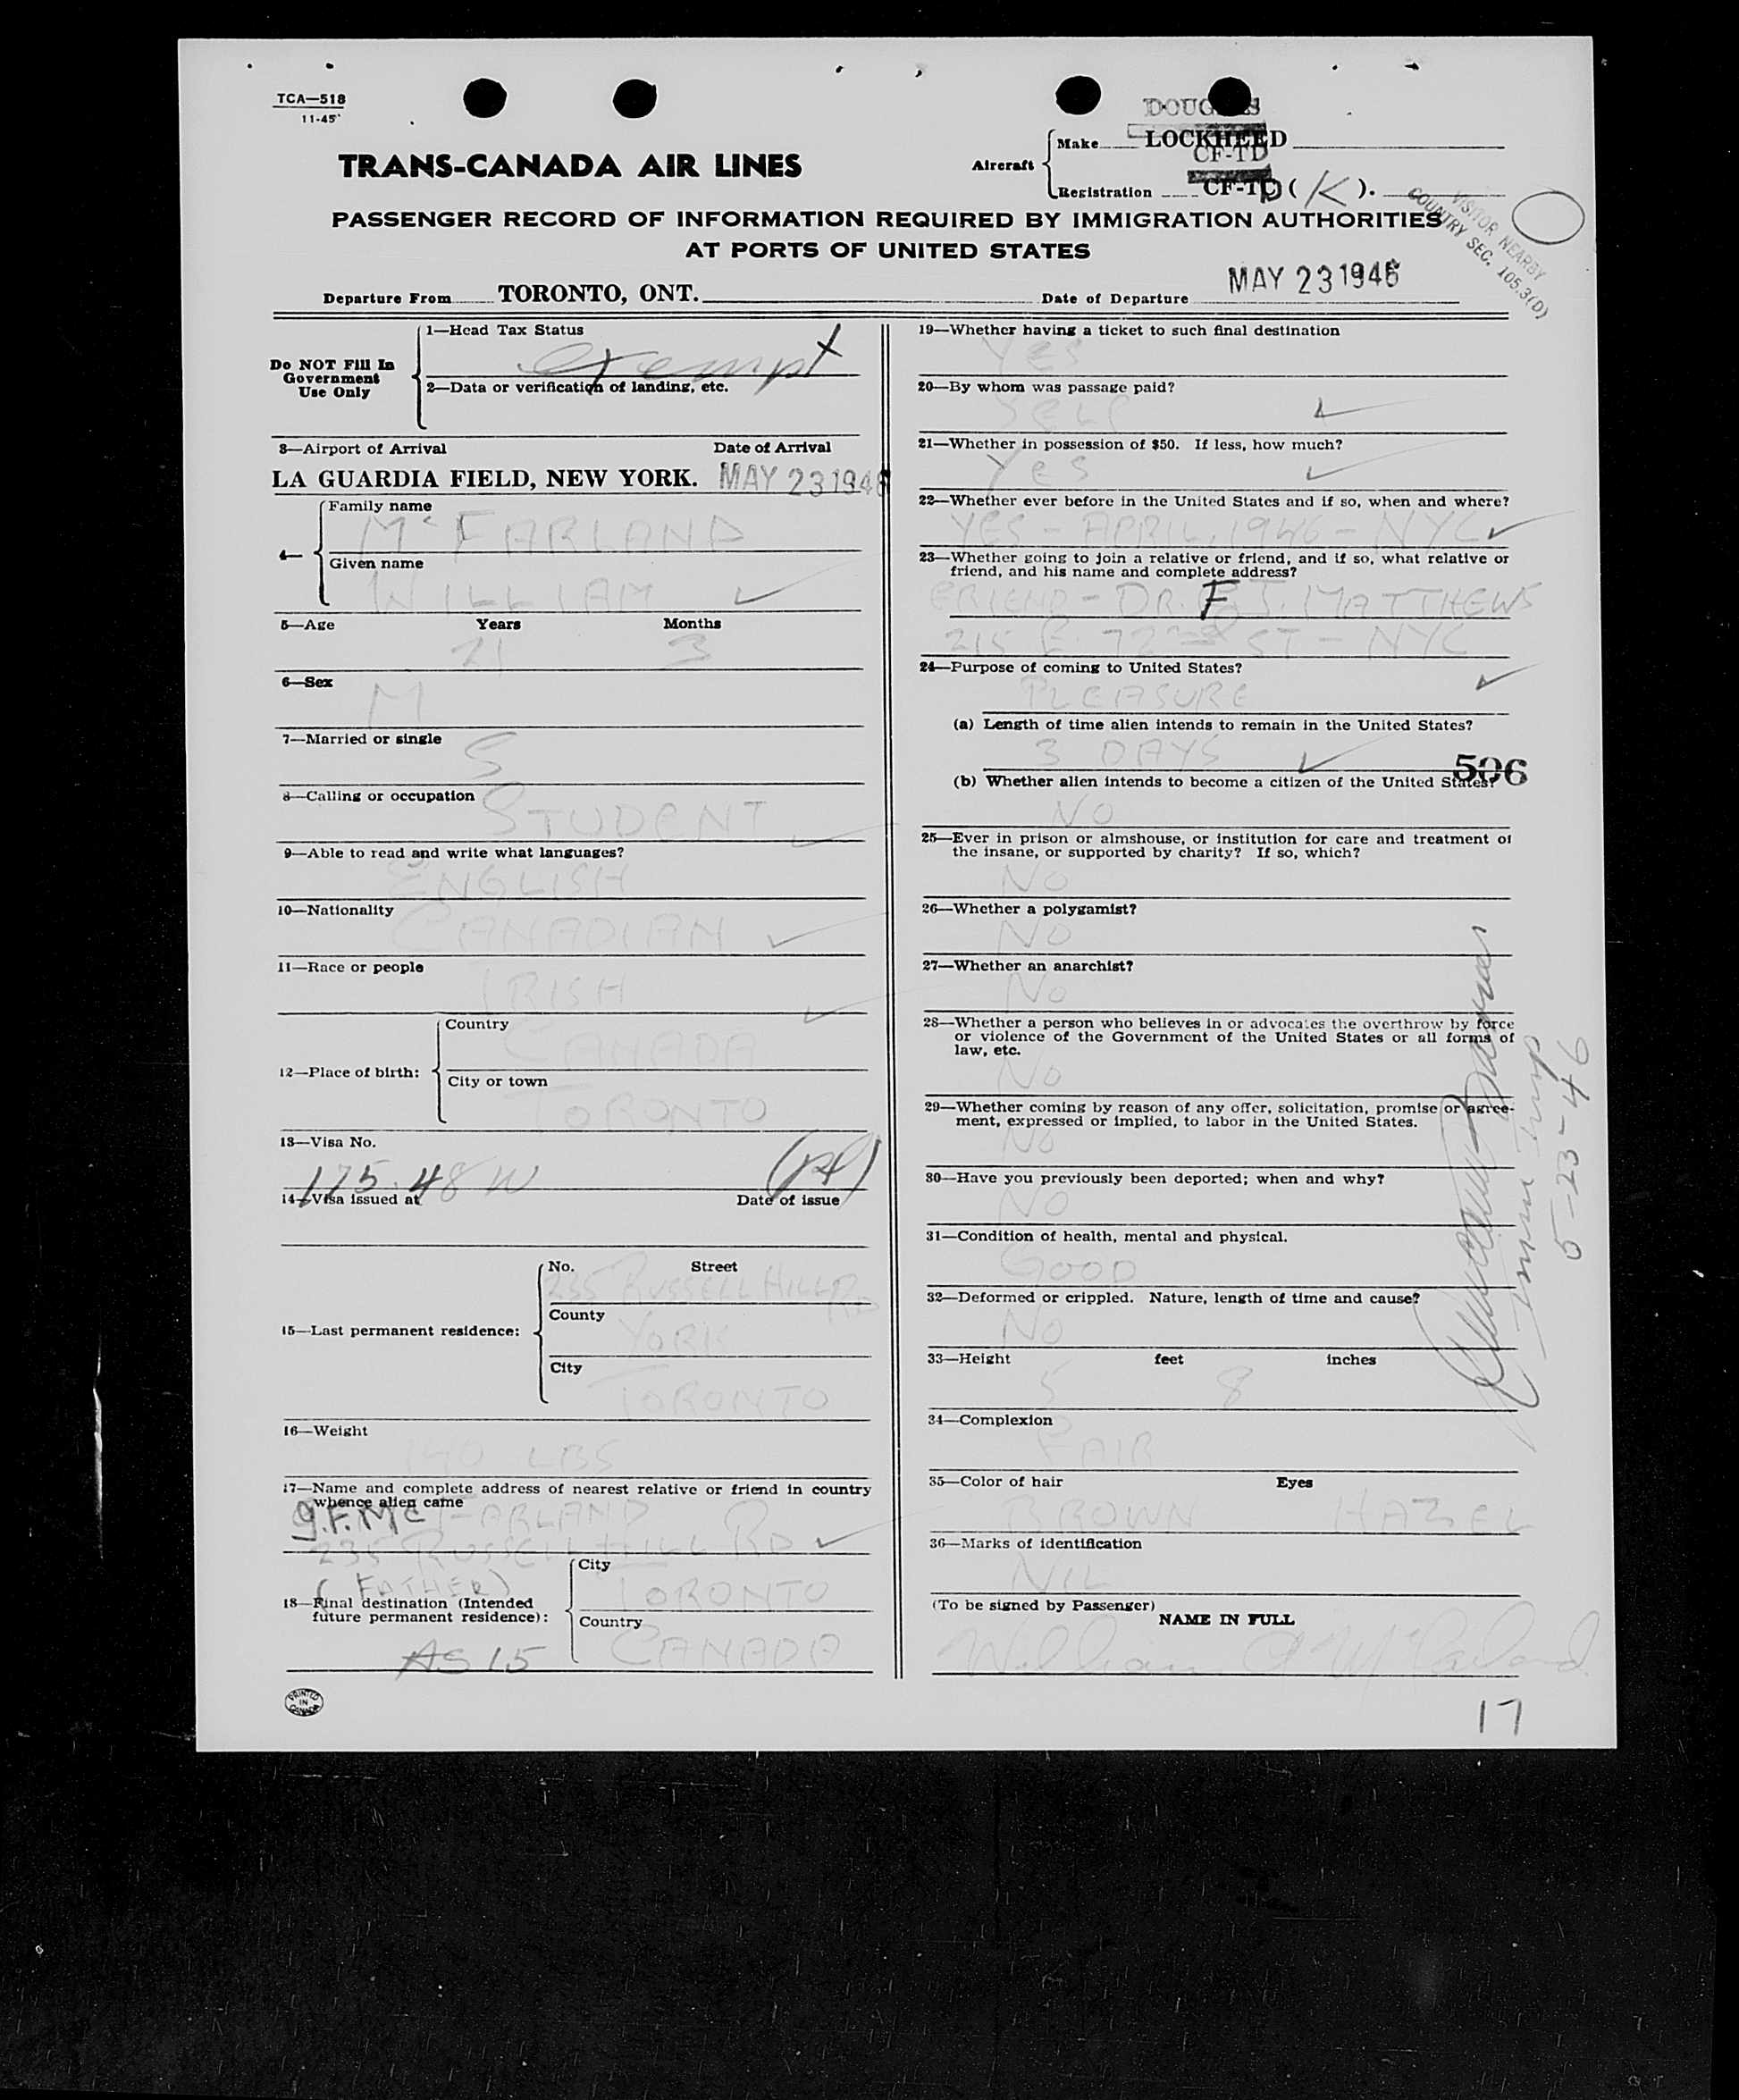 TCA—518
11-45
DOUGLAS
Aircraft
Make LOCKHEED
CF-TD
Registration CF-TD ( K ).
TRANS-CANADA AIR LINES
PASSENGER RECORD OF INFORMATION REQUIRED BY IMMIGRATION AUTHORITIES
AT PORTS OF UNITED STATES
VISITOR NEARBY
COUNTRY SEC. 105.3(D)
Departure From TORONTO, ONT. Date of Departure MAY 23 1946
Do NOT Fill In
Government
Use Only
1—Head Tax Status
exempt
2—Data or verification of landing, etc.
3—Airport of Arrival Date of Arrival
LA GUARDIA FIELD, NEW YORK. MAY 23 1946
4—
Family name
McFARLAND
Given name
WILLIAM
5—Age Years Months
21 3
6—Sex
M
7—Married or single
S
8—Calling or occupation
STUDENT
9—Able to read and write what languages?
ENGLISH
10—Nationality
CANADIAN
11—Race or people
IRISH
12—Place of birth:
Country
CANADA
City or town
TORONTO
13—Visa No.
175.48W
14—Visa issued at Date of issue
15—Last permanent residence:
No. Street
235 RUSSELL HILL RD
County
YORK
City
TORONTO
16—Weight
140 LBS
17—Name and complete address of nearest relative or friend in country
whence alien came
G.F. McFARLAND
235 RUSSELL HILL RD
(FATHER)
18—Final destination (Intended
future permanent residence):
AS 15
City
TORONTO
Country
CANADA
PRINTED
IN
CANADA
19—Whether having a ticket to such final destination
YES
20—By whom was passage paid?
SELF
21—Whether in possession of $50. If less, how much?
YES
22—Whether ever before in the United States and if so, when and where?
YES – APRIL, 1946 – NYC
23—Whether going to join a relative or friend, and if so, what relative or
friend, and his name and complete address?
FRIEND – DR. F J. MATTHEWS
215 E. 72nd ST – NYC
24—Purpose of coming to United States?
PLEASURE
(a) Length of time alien intends to remain in the United States?
3 DAYS
506
(b) Whether alien intends to become a citizen of the United States?
NO
25—Ever in prison or almshouse, or institution for care and treatment of
the insane, or supported by charity? If so, which?
NO
26—Whether a polygamist?
NO
27—Whether an anarchist?
NO
28—Whether a person who believes in or advocates the overthrow by force
or violence of the Government of the United States or all forms of
law, etc.
NO
29—Whether coming by reason of any offer, solicitation, promise or agree-
ment, expressed or implied, to labor in the United States.
NO
30—Have you previously been deported; when and why?
NO
31—Condition of health, mental and physical.
GOOD
32—Deformed or crippled. Nature, length of time and cause?
NO
33—Height feet inches
5 8
34—Complexion
FAIR
35—Color of hair Eyes
BROWN HAZEL
36—Marks of identification
NIL
(To be signed by Passenger)
NAME IN FULL
William G McFarland
Imm Insp
5-23-46
17